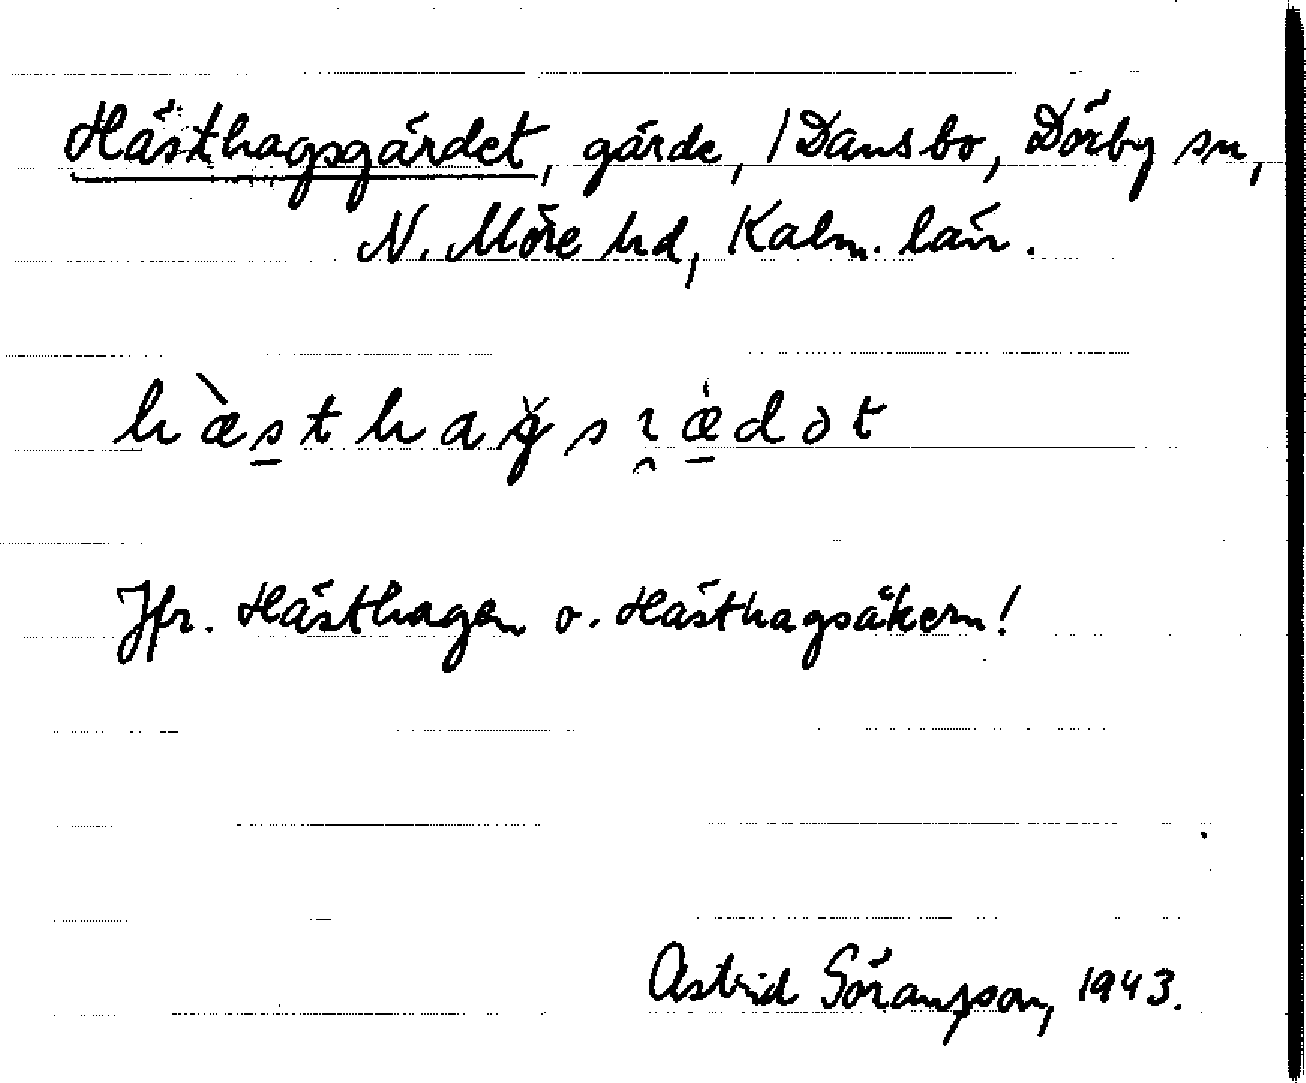 Hästhagsgärdet, gärde, /Dansbo, Dörby sn,
N. Möre hd, Kalm. län.
Jfr. Hästhagen o. Hästhagsåkern!
Astrid Göransson, 1943.